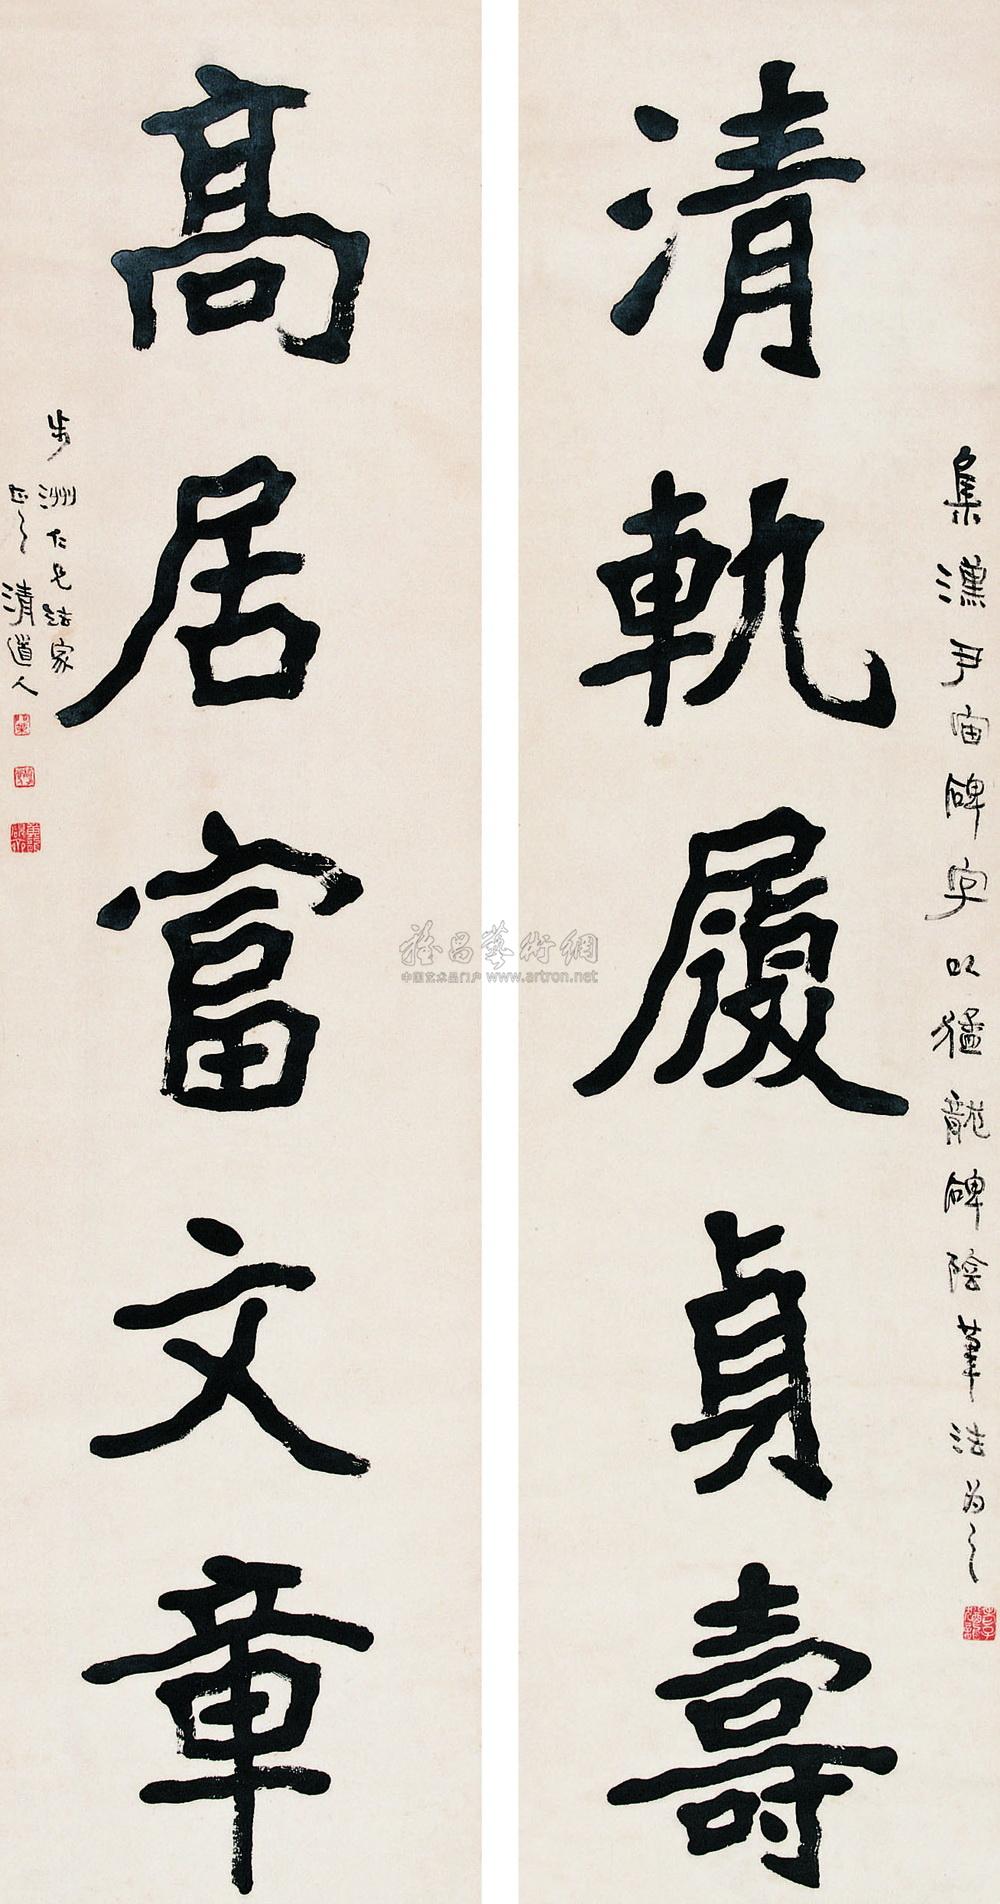 清軌履貞壽
集漢尹宙碑字以猛龍碑陰筆法為之
高居富文章
步洲仁兄法家
正之 清道人
雅昌藝術網
中国艺术品门户 www.artron.net